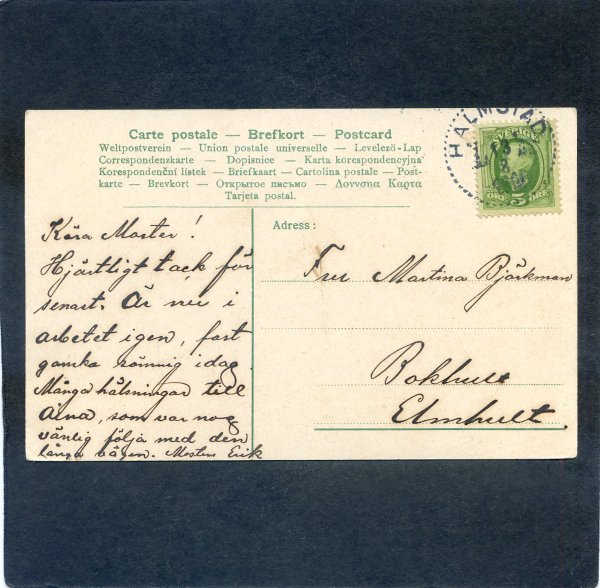 Carte postale — Brefkort — Postcard
Weltpostverein — Union postale universelle — Levelező-Lap
Correspondenzkarte — Dopisnice — Karta korespondencyjna
Korespondenční lístek — Briefkaart — Cartolina postale — Post-
karte — Brevkort — Открытое письмо — Δοννσηα Καρτα
Tarjeta postal.
HALMSTAD
SVERIGE
5
ÖRE ÖRE
Kära Moster!
Hjärtligt tack för
senast. Är nu i
arbetet igen, fast
ganska sömnig idag.
Många hälsningar till
Aina, som var nog
vänlig följa med den
långa vägen. Mosters Erik
Adress:
Fru Martina Björkman
Bokhult
Elmhult.